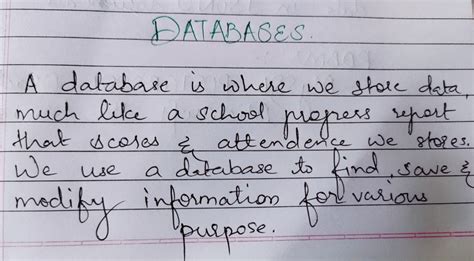 DATABASES.
A database is where we store data,
much like a school progress report
that scores & attendence we stores.
We use a database to find, save &
modify information for various
purpose.